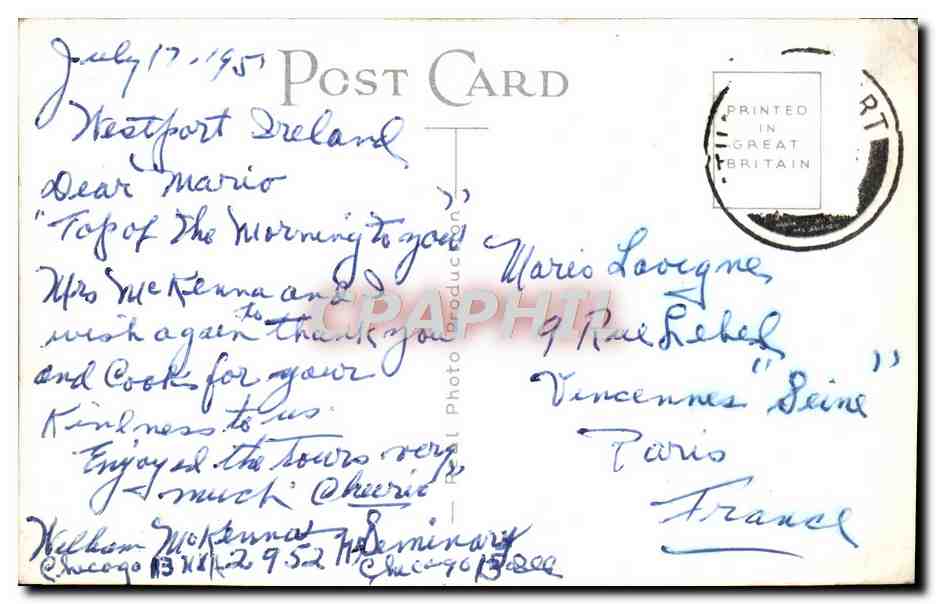 July 17, 195
POST CARD
Westport Ireland
Dear Mario
"Top of the Morning to you"
Mrs McKenna and I
wish again to thank you
and Cooks for your
Kindness to us.
Enjoyed the Tours very
much Cheerio
William McKenna
2952 Seminary
Chicago 13 Chicago 13 Ill
PRINTED
IN
GREAT
BRITAIN
RT
Mario Lavigne
9 Rue Lebel
Vincennes "Seine"
Paris
France
Real Photo Production
CRAPHIL